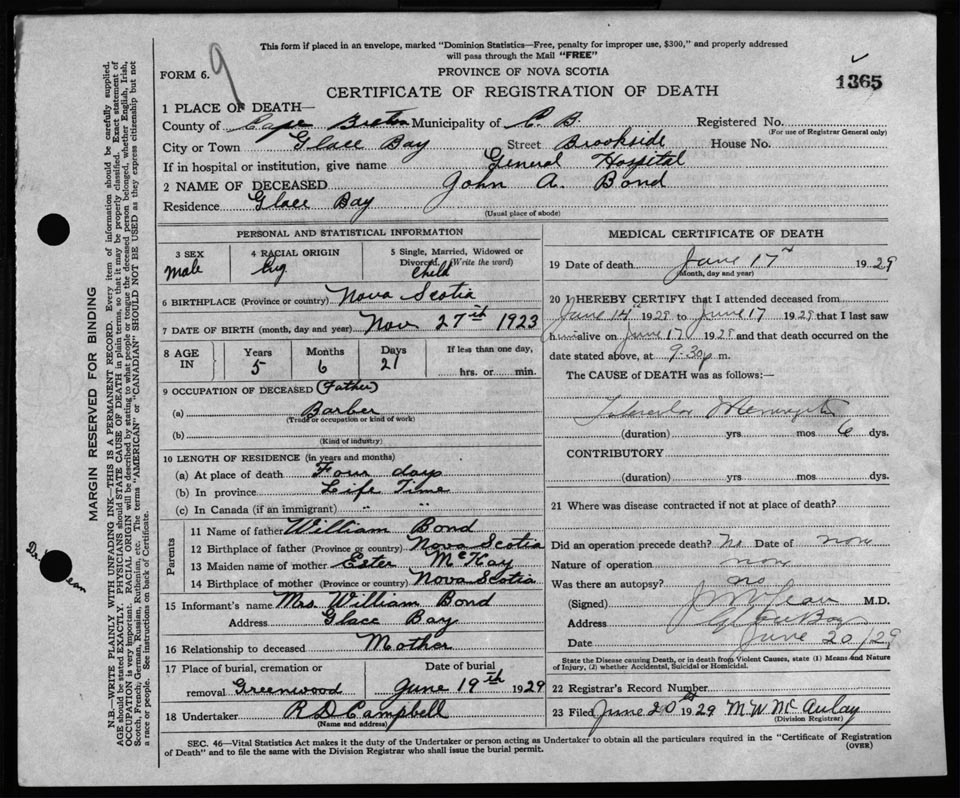 This form if placed in an envelope, marked "Dominion Statistics—Free, penalty for improper use, $300," and properly addressed
will pass through the Mail "FREE"
FORM 6. 9
PROVINCE OF NOVA SCOTIA
1365
CERTIFICATE OF REGISTRATION OF DEATH
1 PLACE OF DEATH—
County of Cape Breton Municipality of C. B. Registered No.
(For use of Registrar General only)
City or Town Glace Bay Street Brookside House No.
If in hospital or institution, give name General Hospital
2 NAME OF DECEASED John A. Bond
Residence Glace Bay
(Usual place of abode)
PERSONAL AND STATISTICAL INFORMATION
3 SEX 4 RACIAL ORIGIN 5 Single, Married, Widowed or
Divorced (Write the word)
Male Eng Child
6 BIRTHPLACE (Province or country) Nova Scotia
7 DATE OF BIRTH (month, day and year) Nov 27th 1923
8 AGE IN Years Months Days If less than one day,
5 6 21 hrs. or min.
9 OCCUPATION OF DECEASED (Father)
(a) Barber
(Trade or occupation or kind of work)
(b)
(Kind of industry)
10 LENGTH OF RESIDENCE (in years and months)
(a) At place of death Four days
(b) In province Life Time
(c) In Canada (if an immigrant) " "
Parents
11 Name of father William Bond
12 Birthplace of father (Province or country) Nova Scotia
13 Maiden name of mother Ester McKay
14 Birthplace of mother (Province or country) Nova Scotia
15 Informant's name Mrs. William Bond
Address Glace Bay
16 Relationship to deceased Mother
17 Place of burial, cremation or Date of burial
removal Greenwood June 19th 1929
18 Undertaker R D Campbell
(Name and address)
MEDICAL CERTIFICATE OF DEATH
19 Date of death June 17 1929
(Month, day and year)
20 I HEREBY CERTIFY that I attended deceased from
June 14th 1929 to June 17 1929 that I last saw
him alive on June 17 1929 and that death occurred on the
date stated above, at 9.30 p m.
The CAUSE of DEATH was as follows:—
Tubercular Meningitis
(duration) yrs mos 6 dys.
CONTRIBUTORY
(duration) yrs mos dys.
21 Where was disease contracted if not at place of death?
Did an operation precede death? No Date of none
Nature of operation none
Was there an autopsy? no
(Signed) M.D.
Address Glace Bay
Date June 20/29
State the Disease causing Death, or in death from Violent Causes, state (1) Means and Nature
of Injury, (2) whether Accidental, Suicidal or Homicidal.
22 Registrar's Record Number
23 Filed June 20th 1929 M W McAulay
(Division Registrar)
SEC. 46—Vital Statistics Act makes it the duty of the Undertaker or person acting as Undertaker to obtain all the particulars required in the "Certificate of Registration
of Death" and to file the same with the Division Registrar who shall issue the burial permit.
(OVER)
MARGIN RESERVED FOR BINDING
N.B.—WRITE PLAINLY WITH UNFADING INK—THIS IS A PERMANENT RECORD. Every item of information should be carefully supplied.
AGE should be stated EXACTLY. PHYSICIANS should STATE CAUSE OF DEATH in plain terms, so that it may be properly classified. Exact statement of
OCCUPATION is very important. RACIAL ORIGIN will be described by stating to what people or tongue the deceased person belonged, whether English, Irish,
Scotch, French, German, Russian, Ruthenian, etc. The terms "AMERICAN" or "CANADIAN" SHOULD NOT BE USED as they express citizenship but not
a race or people. See instructions on back of Certificate.